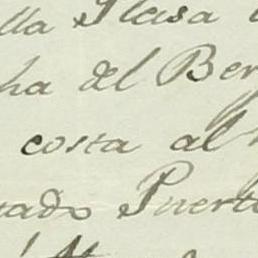 lla Plasa
ha del Ber
costa al
uado Puerto